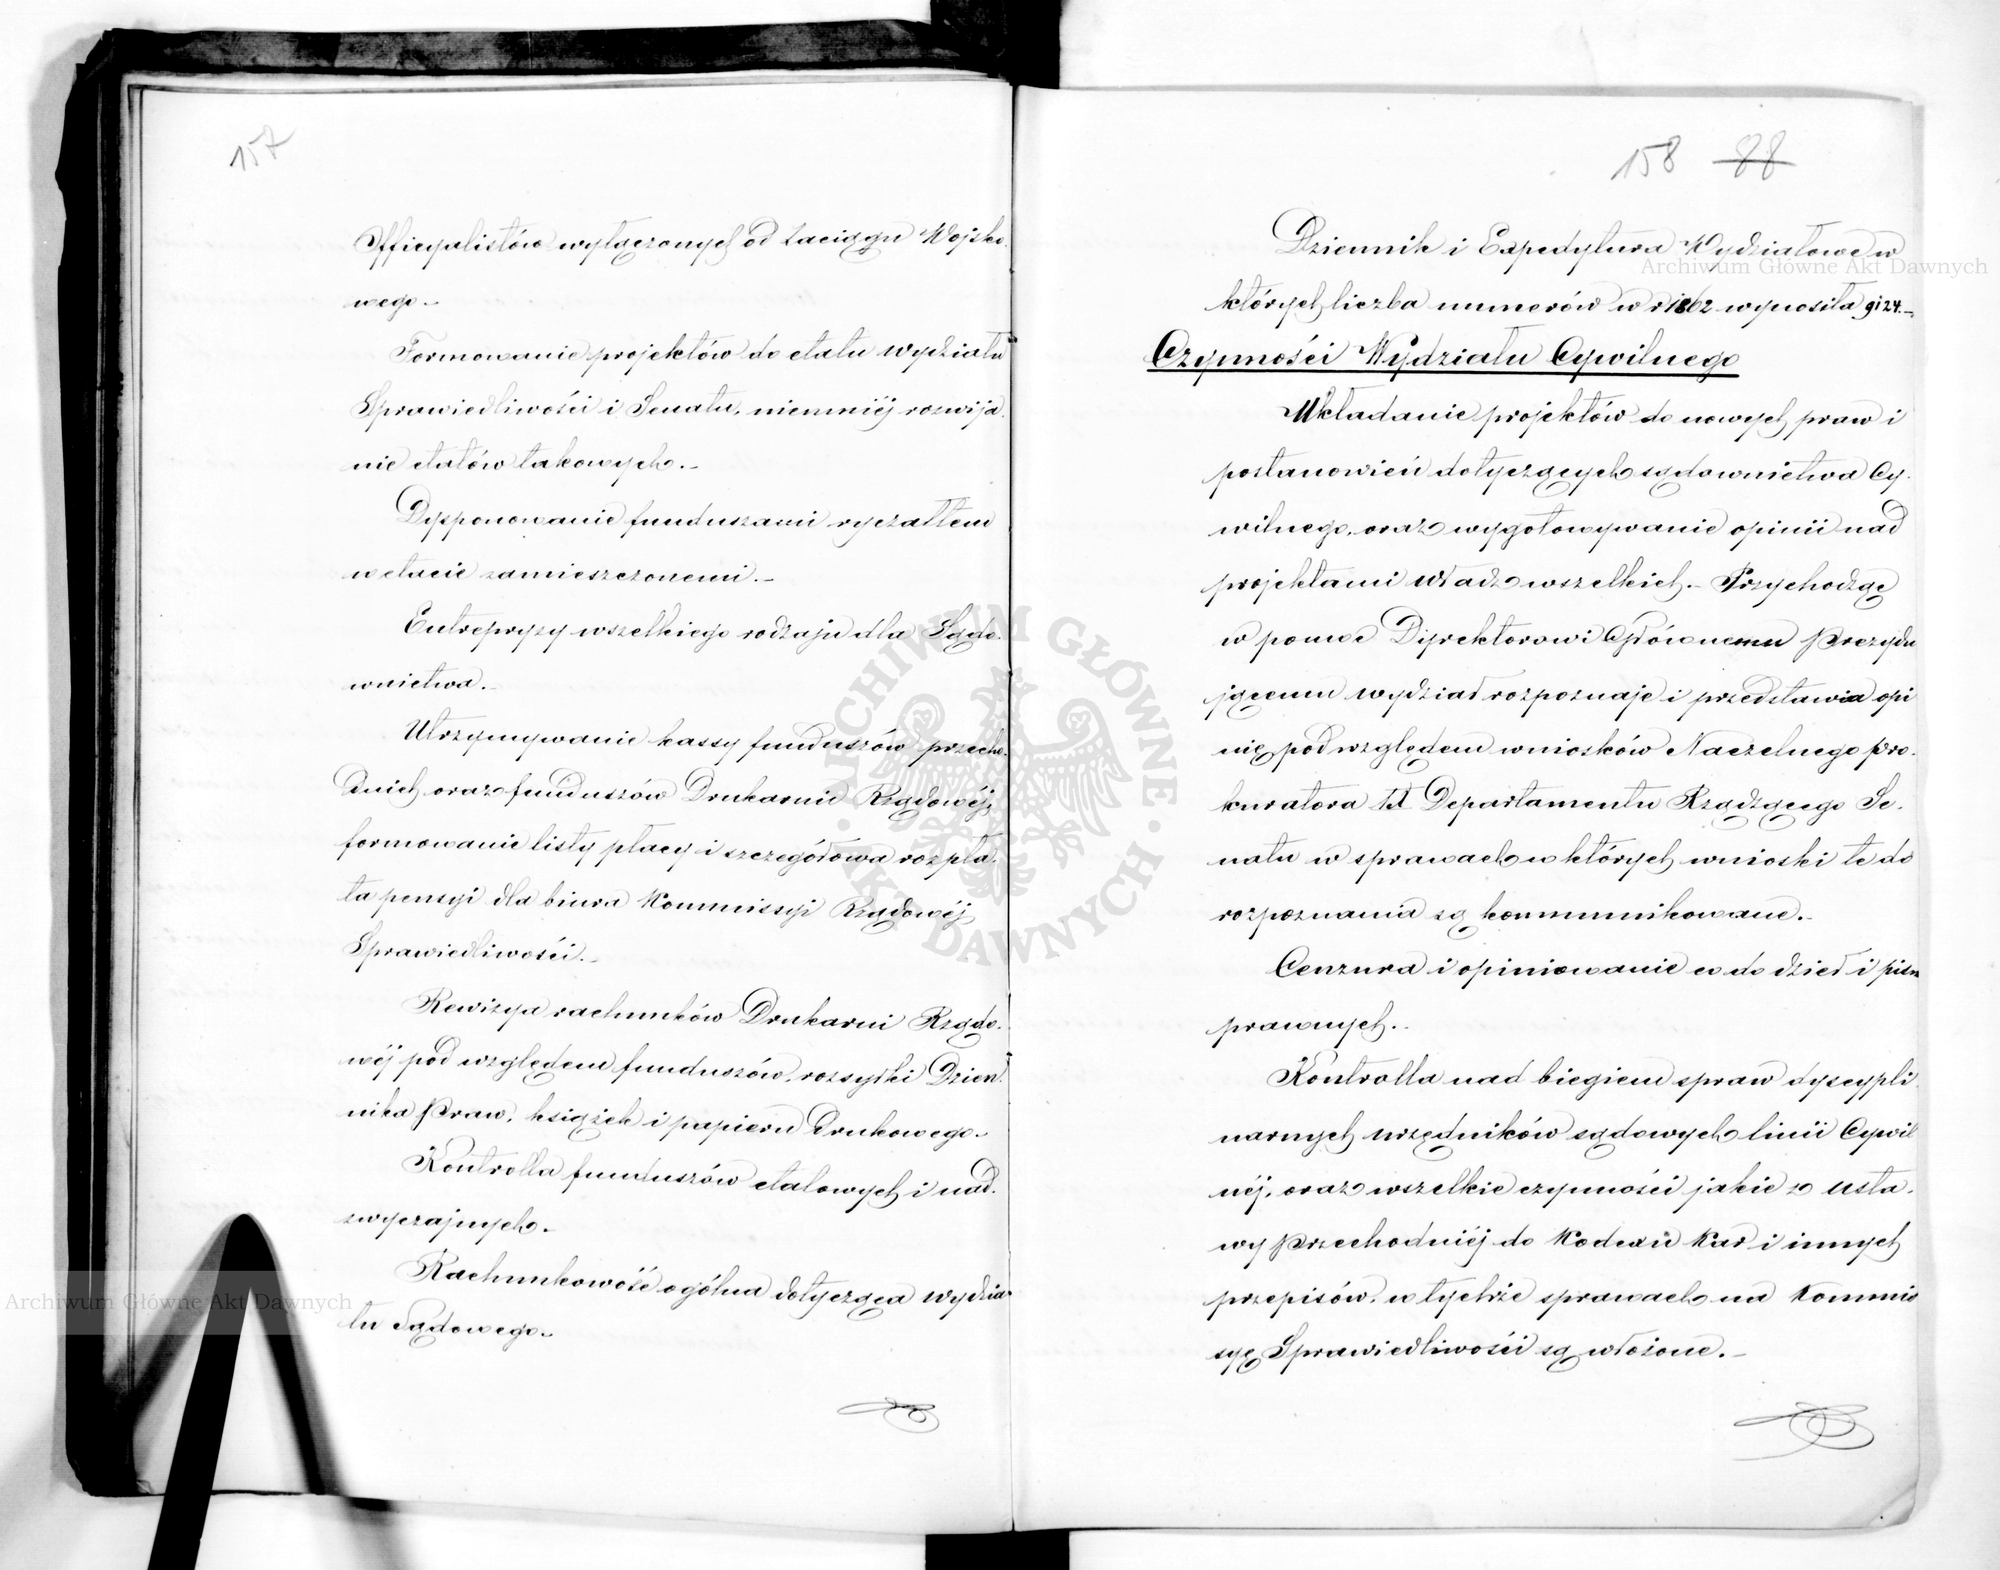 157
Officyalistów wyłączonych od Zaciągu Wojsko-
wego.-
Formowanie projektów do etatu wydziału
Sprawiedliwości i Senatu, niemniéj rozwija-
nie etatów takowych.-
Dysponowanie funduszami ryczałtem
w etacie zamieszczonemi.-
Entrepryzy wszelkiego rodzaju dla Sądo-
wnictwa.-
Utrzymywanie kassy funduszów przecho-
dnich oraz funduszów Drukarni Rządowéj,
formowanie listy płacy i szczegółowa rozpła-
ta pensyi dla biura Kommissyi Rządowéj
Sprawiedliwości.-
Rewizya rachunków Drukarni Rządo-
wéj pod względem funduszów, rozsyłki Dzien-
nika Praw, książek i papieru Drukowego.-
Kontrolla funduszów etatowych i nad-
zwyczajnych.-
Rachunkowość ogólna dotycząca wydzia-
łu Sądowego.-
158 88
Dziennik i Expedytura Wydziałowe w
których liczba numerów w r 1862 wynosiła 9124.-
Czynności Wydziału Cywilnego
Układanie projektów do nowych praw i
postanowień dotyczących sądownictwa Cy-
wilnego, oraz wygotowywanie opinii nad
projektami władz wszelkich.- Przychodząc
w pomoc Dyrektorowi Głównemu Prezydu
jącemu wydział rozpoznaje i przedstawia opi
nię pod względem wniosków Naczelnego Pro-
kuratora IX Departamentu Rządzącego Se-
natu w sprawach w których wnioski te do
rozpoznania są kommunikowane.-
Cenzura i opiniowanie co do dzieł i pism
prawnych.-
Kontrolla nad biegiem spraw dyscypli
narnych urzędników sądowych linii Cywil
néj, oraz wszelkie czynności jakie z usta-
wy Przechodniéj do Kodexu Kar i innych
przepisów, w tychże sprawach na Kommis
syę Sprawiedliwości są włożone.-
Archiwum Główne Akt Dawnych
Archiwum Główne Akt Dawnych
ARCHIWUM GŁÓWNE · AKT DAWNYCH ·